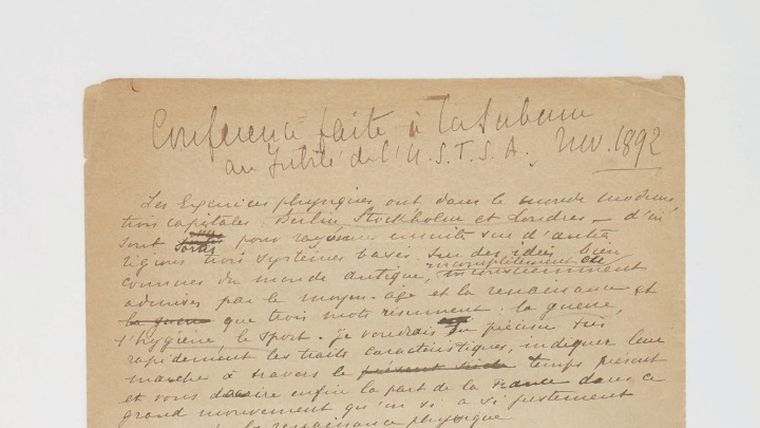 Conférence faite à la Sorbonne
au Jubilé de l'U.S.F.S.A. Nov. 1892
Les Exercices physiques ont dans le monde moderne
trois capitales : Berlin, Stockholm et Londres — d'où
sont sortis pour rayonner ensuite sur d'autres
régions trois systèmes basés sur des idées bien
connues du monde antique, incomplètement ou inconsciemment
admises par le moyen-âge et la renaissance et
la guerre que trois mots résument : la guerre,
l'hygiène, le sport. Je voudrais en préciser très
rapidement les traits caractéristiques, indiquer leur
marche à travers le présent siècle temps présent
et vous dire enfin la part de la France dans ce
grand mouvement qu'on a si justement
la renaissance physique